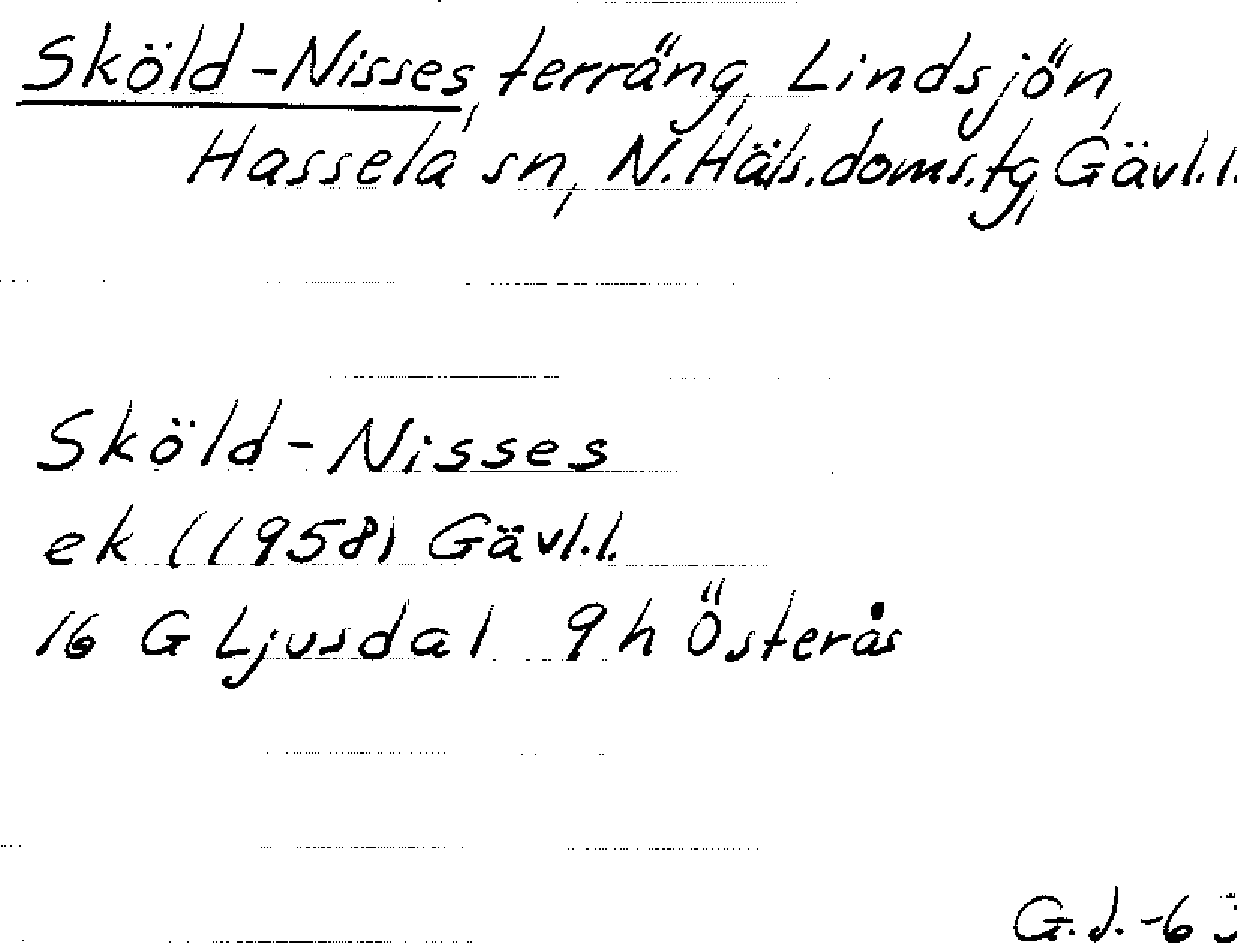 Sköld-Nisses, terräng, Lindsjön,
Hassela sn, N.Häls.doms.tg, Gävl.l.
Sköld-Nisses
ek (1958) Gävl.l.
16 G Ljusdal 9h Österås
G.J.-63